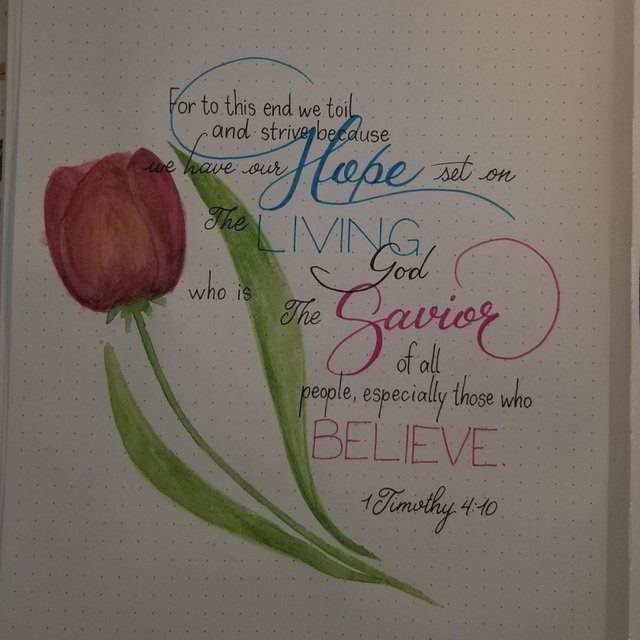 For to this end we toil
and strive because
we have our Hope set on
The LIVING
God
who is The Savior
of all
people, especially those who
BELIEVE.
1 Timothy 4:10